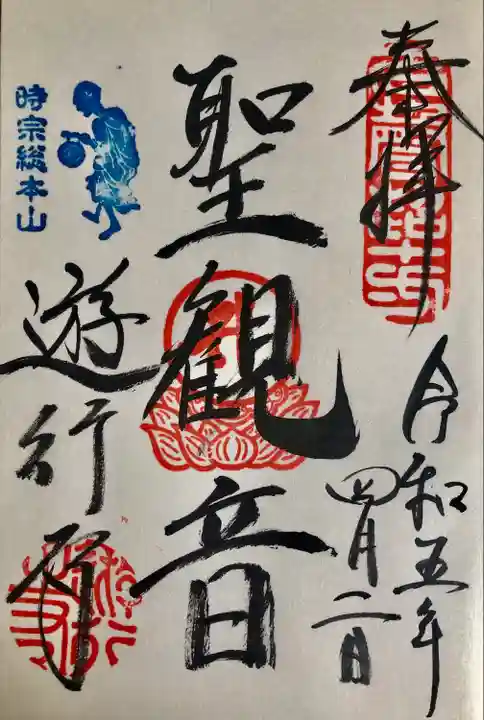 奉拝
令和五年
四月二日
聖観音
時宗総本山
遊行寺